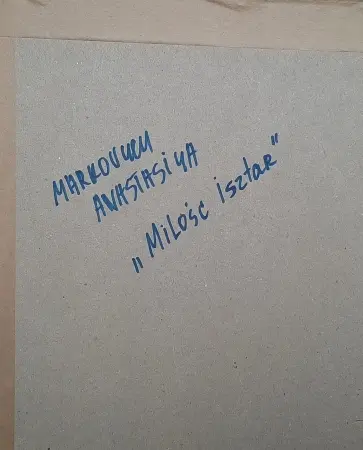 MARKOVYCH
ANASTASiYA
„MiLOŚĆ iSztAR"